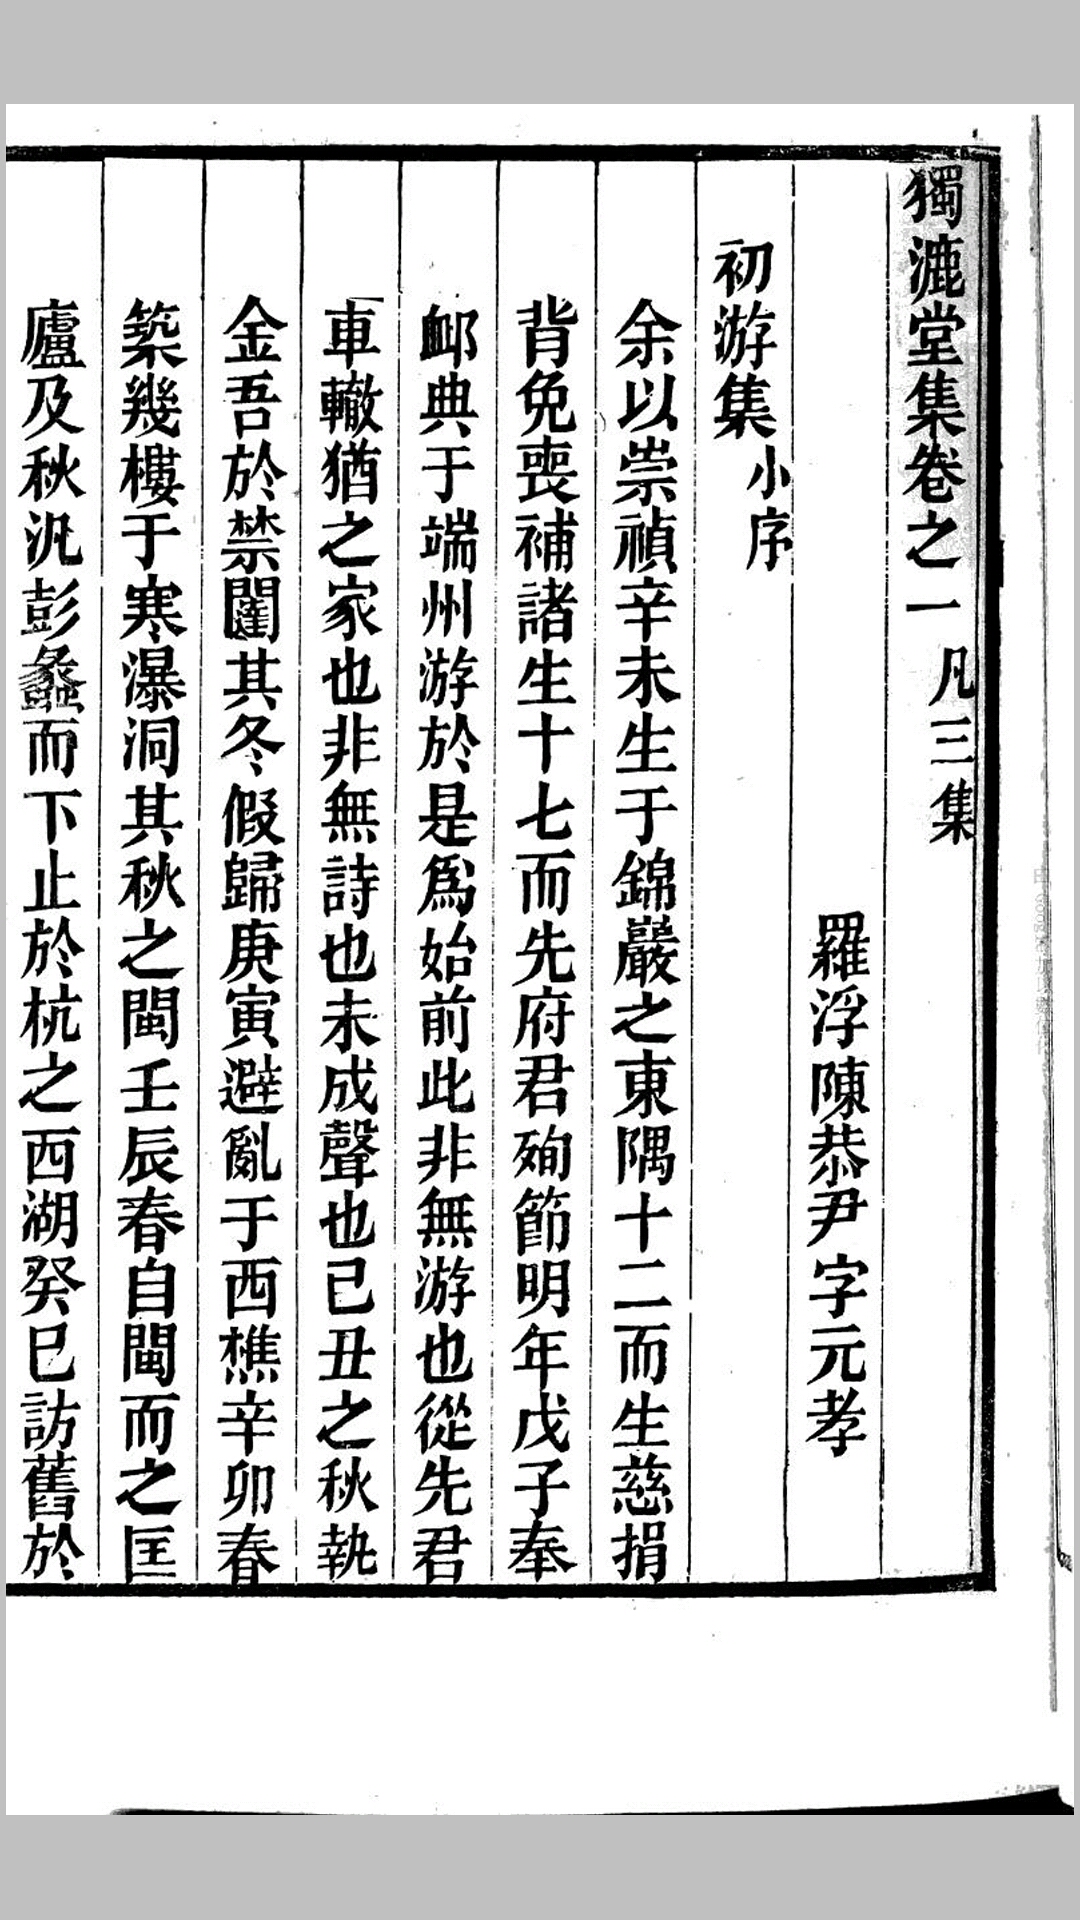 獨漉堂集卷之一 凡三集
羅浮陳恭尹字元孝
初游集 小序
余以崇禎辛未生于錦巖之東隅十二而生慈捐
背免喪補諸生十七而先府君殉節明年戊子奉
卹典于端州游於是爲始前此非無游也從先君
車轍猶之家也非無詩也未成聲也已丑之秋執
金吾於禁闈其冬假歸庚寅避亂于西樵辛卯春
築幾樓于寒瀑洞其秋之閩壬辰春自閩而之匡
廬及秋汎彭蠡而下止於杭之西湖癸巳訪舊於